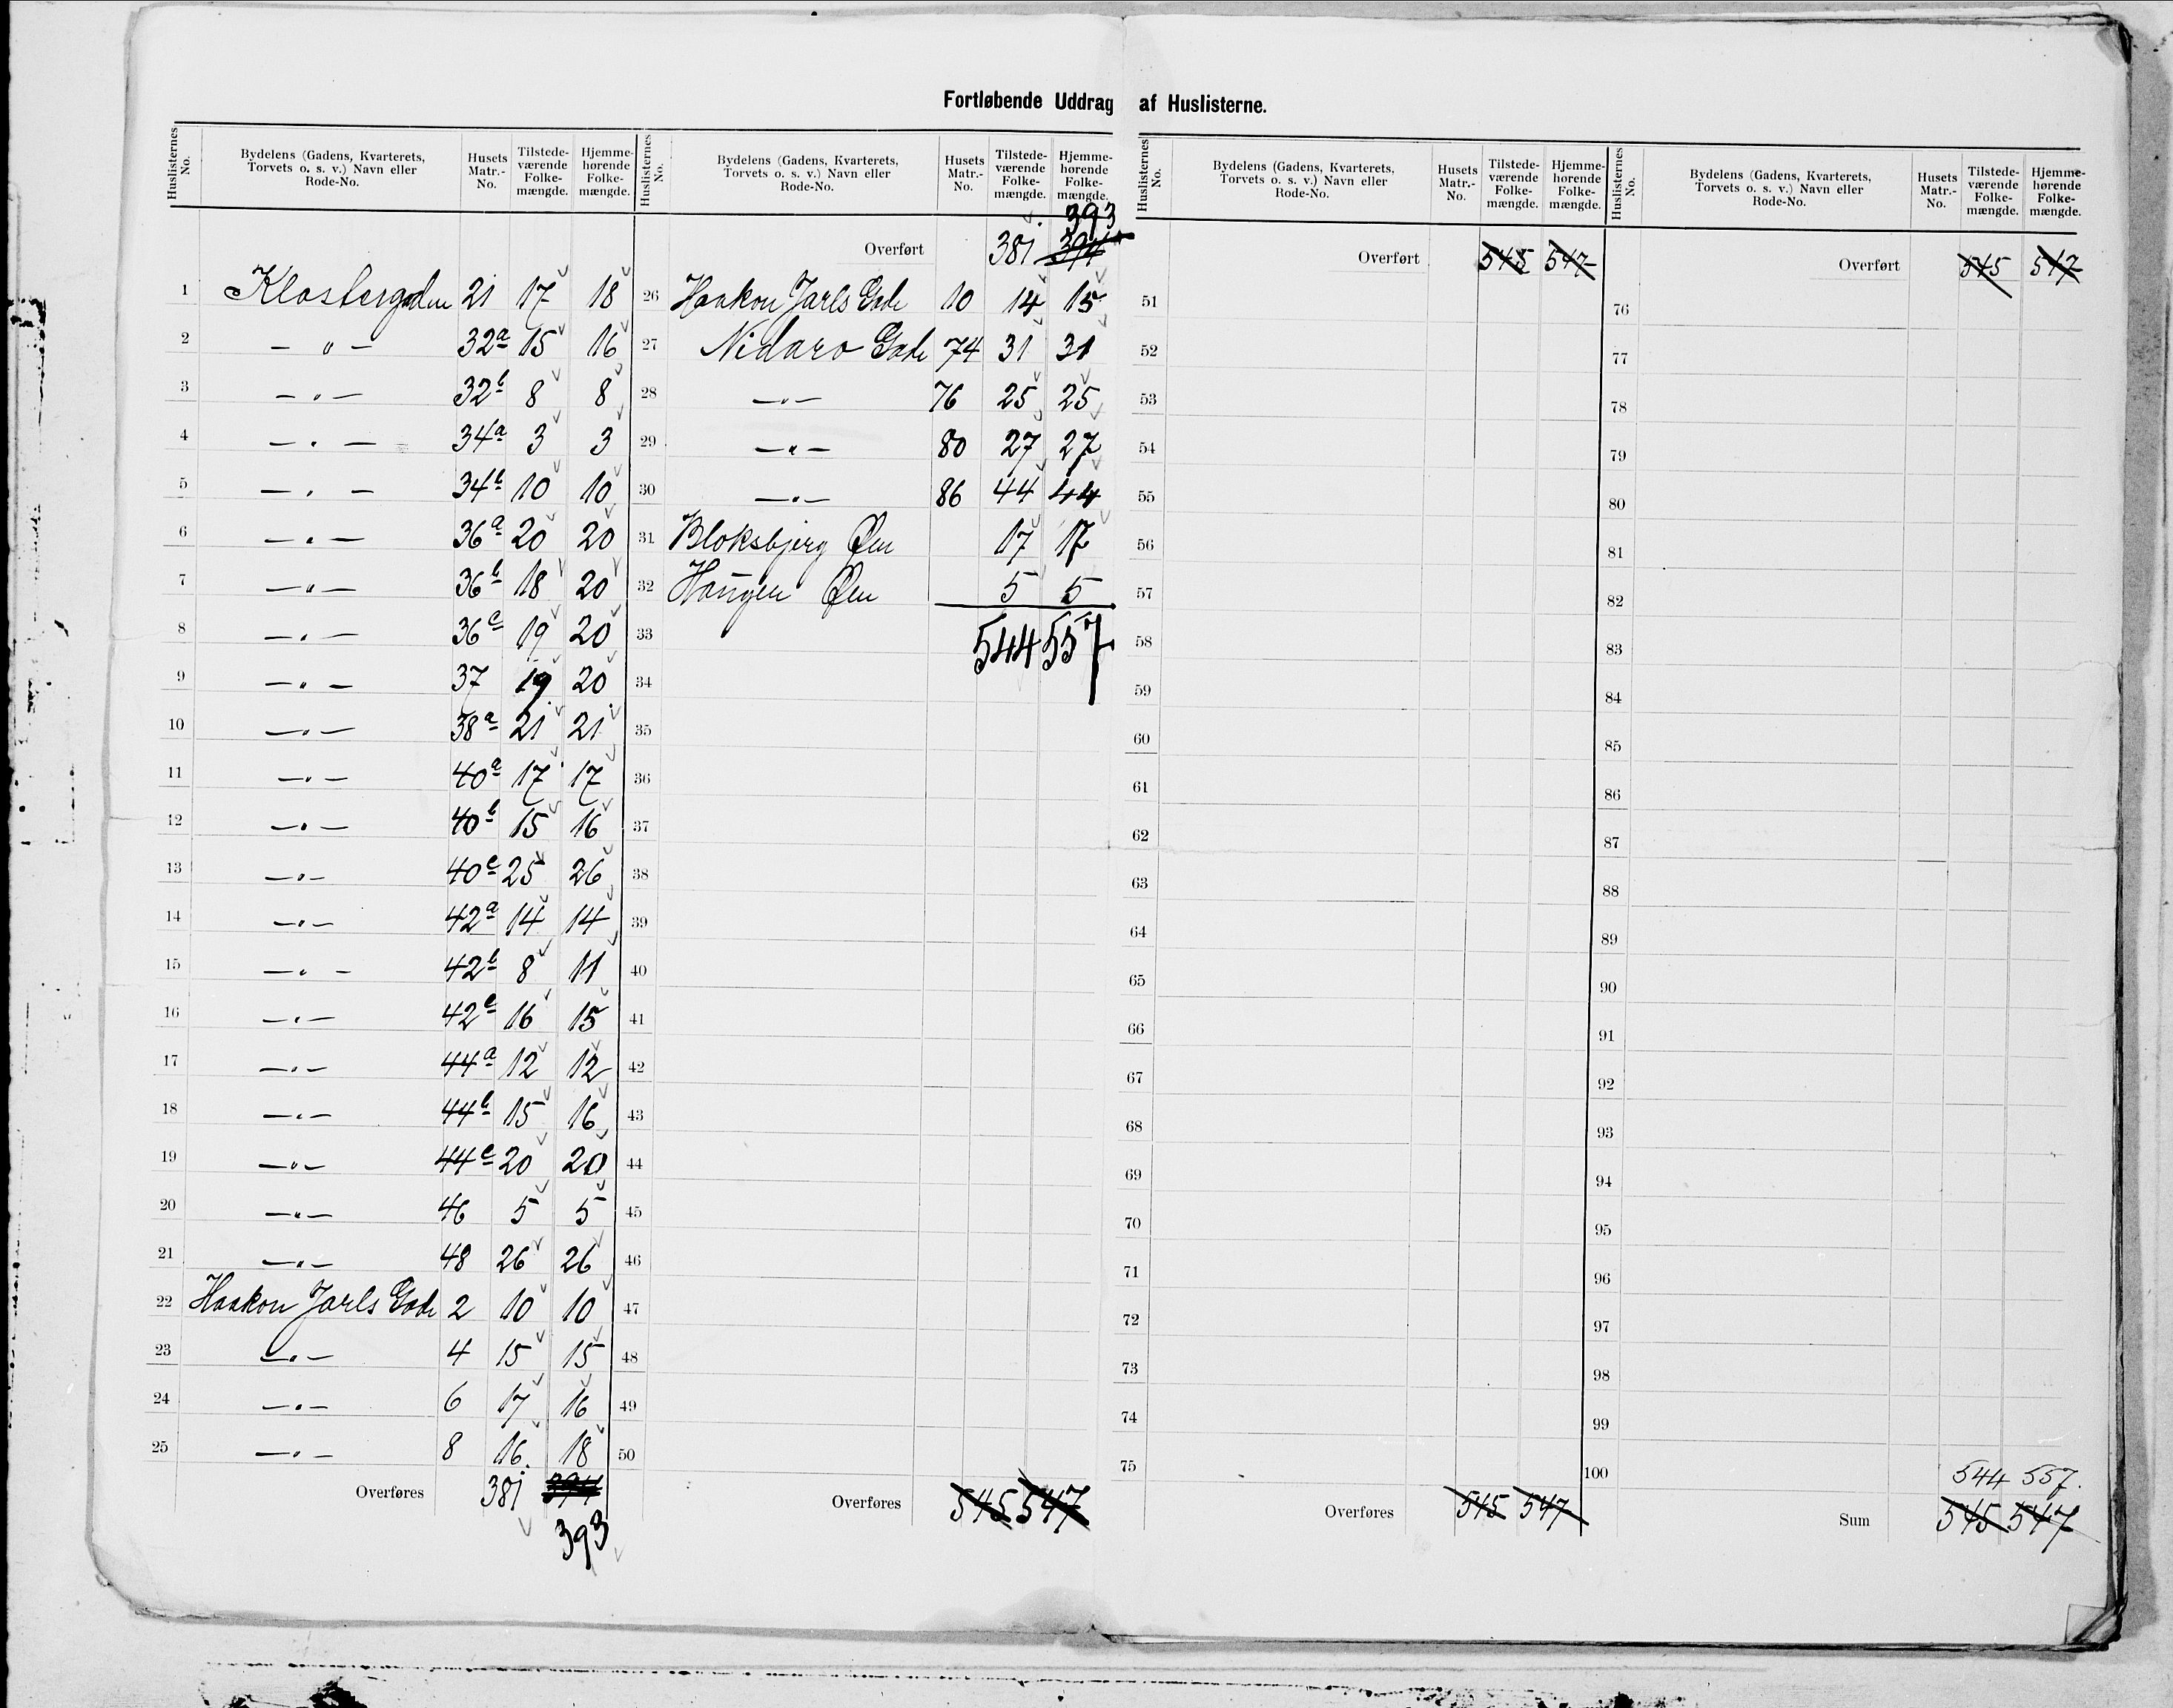 Fortløbende Uddrag af Huslisterne.
Huslisternes No. Bydelens (Gadens, Kvarterets, Torvets o. s. v.) Navn eller Rode-No. Husets Matr.-No. Tilstede-værende Folke-mængde. Hjemme-hørende Folke-mængde.
1 Klostergaden 21 17 18
2 — „ — 32a 15 16
3 — „ — 32b 8 8
4 — „ — 34a 3 3
5 — „ — 34b 10 10
6 — „ — 36a 20 20
7 — „ — 36b 18 20
8 — „ — 36c 19 20
9 — „ — 37 19 20
10 — „ — 38a 21 21
11 — „ — 40a 17 17
12 — „ — 40b 15 16
13 — „ — 40c 25 26
14 — „ — 42a 14 14
15 — „ — 42b 8 11
16 — „ — 42c 16 15
17 — „ — 44a 12 12
18 — „ — 44b 15 16
19 — „ — 44c 20 20
20 — „ — 46 5 5
21 — „ — 48 26 26
22 Haakon Jarls Gade 2 10 10
23 — „ — 4 15 15
24 — „ — 6 17 16
25 — „ — 8 16 18
Overføres 381 394
393
Huslisternes No. Bydelens (Gadens, Kvarterets, Torvets o. s. v.) Navn eller Rode-No. Husets Matr.-No. Tilstede-værende Folke-mængde. Hjemme-hørende Folke-mængde.
393
Overført 381 394
26 Haakon Jarls Gade 10 14 15
27 Nidaro Gade 74 31 31
28 — „ — 76 25 25
29 — „ — 80 27 27
30 — „ — 86 44 44
31 Bloksbjerg Øen 17 17
32 Haugen Øen 5 5
33 544 557
34
35
36
37
38
39
40
41
42
43
44
45
46
47
48
49
50
Overføres 545 547
Huslisternes No. Bydelens (Gadens, Kvarterets, Torvets o. s. v.) Navn eller Rode-No. Husets Matr.-No. Tilstede-værende Folke-mængde. Hjemme-hørende Folke-mængde.
Overført 545 547
51
52
53
54
55
56
57
58
59
60
61
62
63
64
65
66
67
68
69
70
71
72
73
74
75
Overføres 545 547
Huslisternes No. Bydelens (Gadens, Kvarterets, Torvets o. s. v.) Navn eller Rode-No. Husets Matr.-No. Tilstede-værende Folke-mængde. Hjemme-hørende Folke-mængde.
Overført 545 547
76
77
78
79
80
81
82
83
84
85
86
87
88
89
90
91
92
93
94
95
96
97
98
99
100
544 557.
Sum 545 547